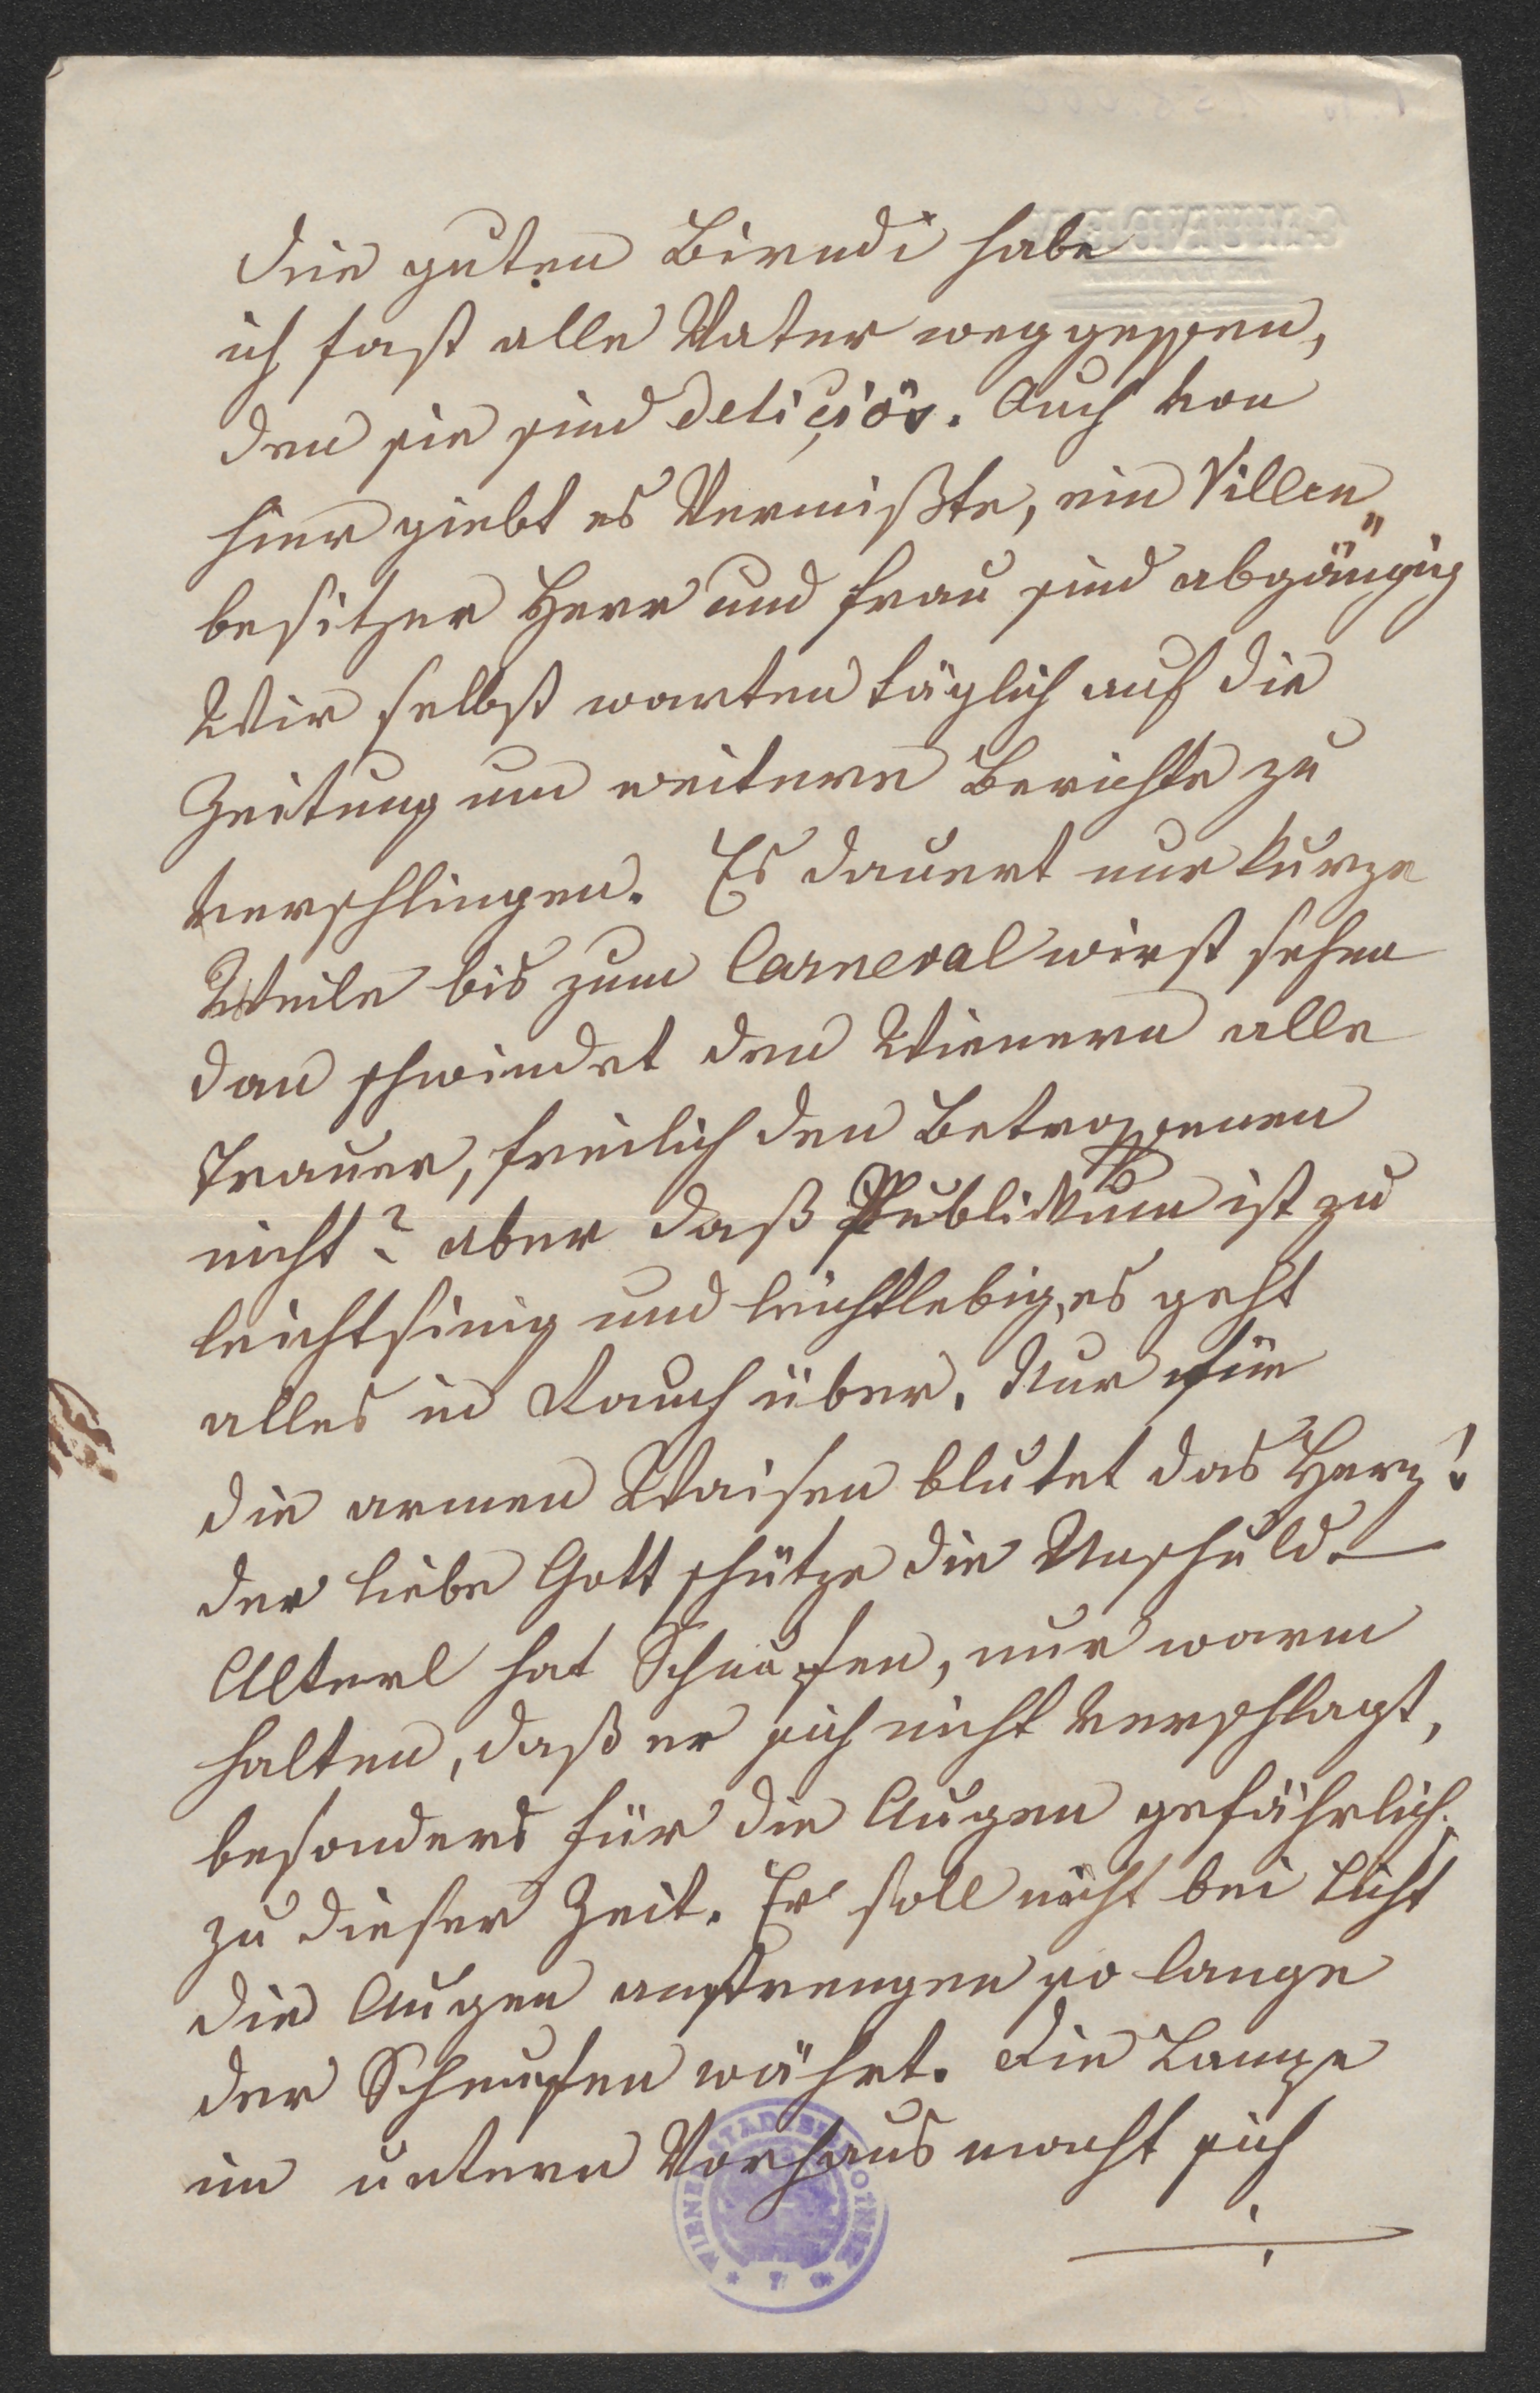 Die guten Birndi habe
ich fast alle Vater weggessen,
den sie sind deliçiös. Auch von
hier giebt es Vermißte, ein Villen„
besitzer Herr und Frau sind abgängig
Wir selbst warten täglich auf die
Zeitung um weitere Berichte zu
verschlingen. Es dauert nur kurze
Weile bis zum Carneval wirst sehen
dan schwindet den Wienern alle
Trauer, freilich den Betroffenen
nicht? aber daß Publikum ist zu
leichtsinig und leichtlebig, es geht
alles in Rauch über. Nur für
die armen Waisen blutet das Herz!
der liebe Gott schütze die Unschuld. —
Alterl hat Schnupfen, nur warm
halten, daß er sich nicht verschlagt,
besonders für die Augen gefährlich.
zu dieser Zeit. Er soll nicht bei Licht
die Augen anstrengen so lange
der Schnupfen währt. Die Lampe
im untern Vorhaus macht sich
WIENER STADTBIBLIOTHEK